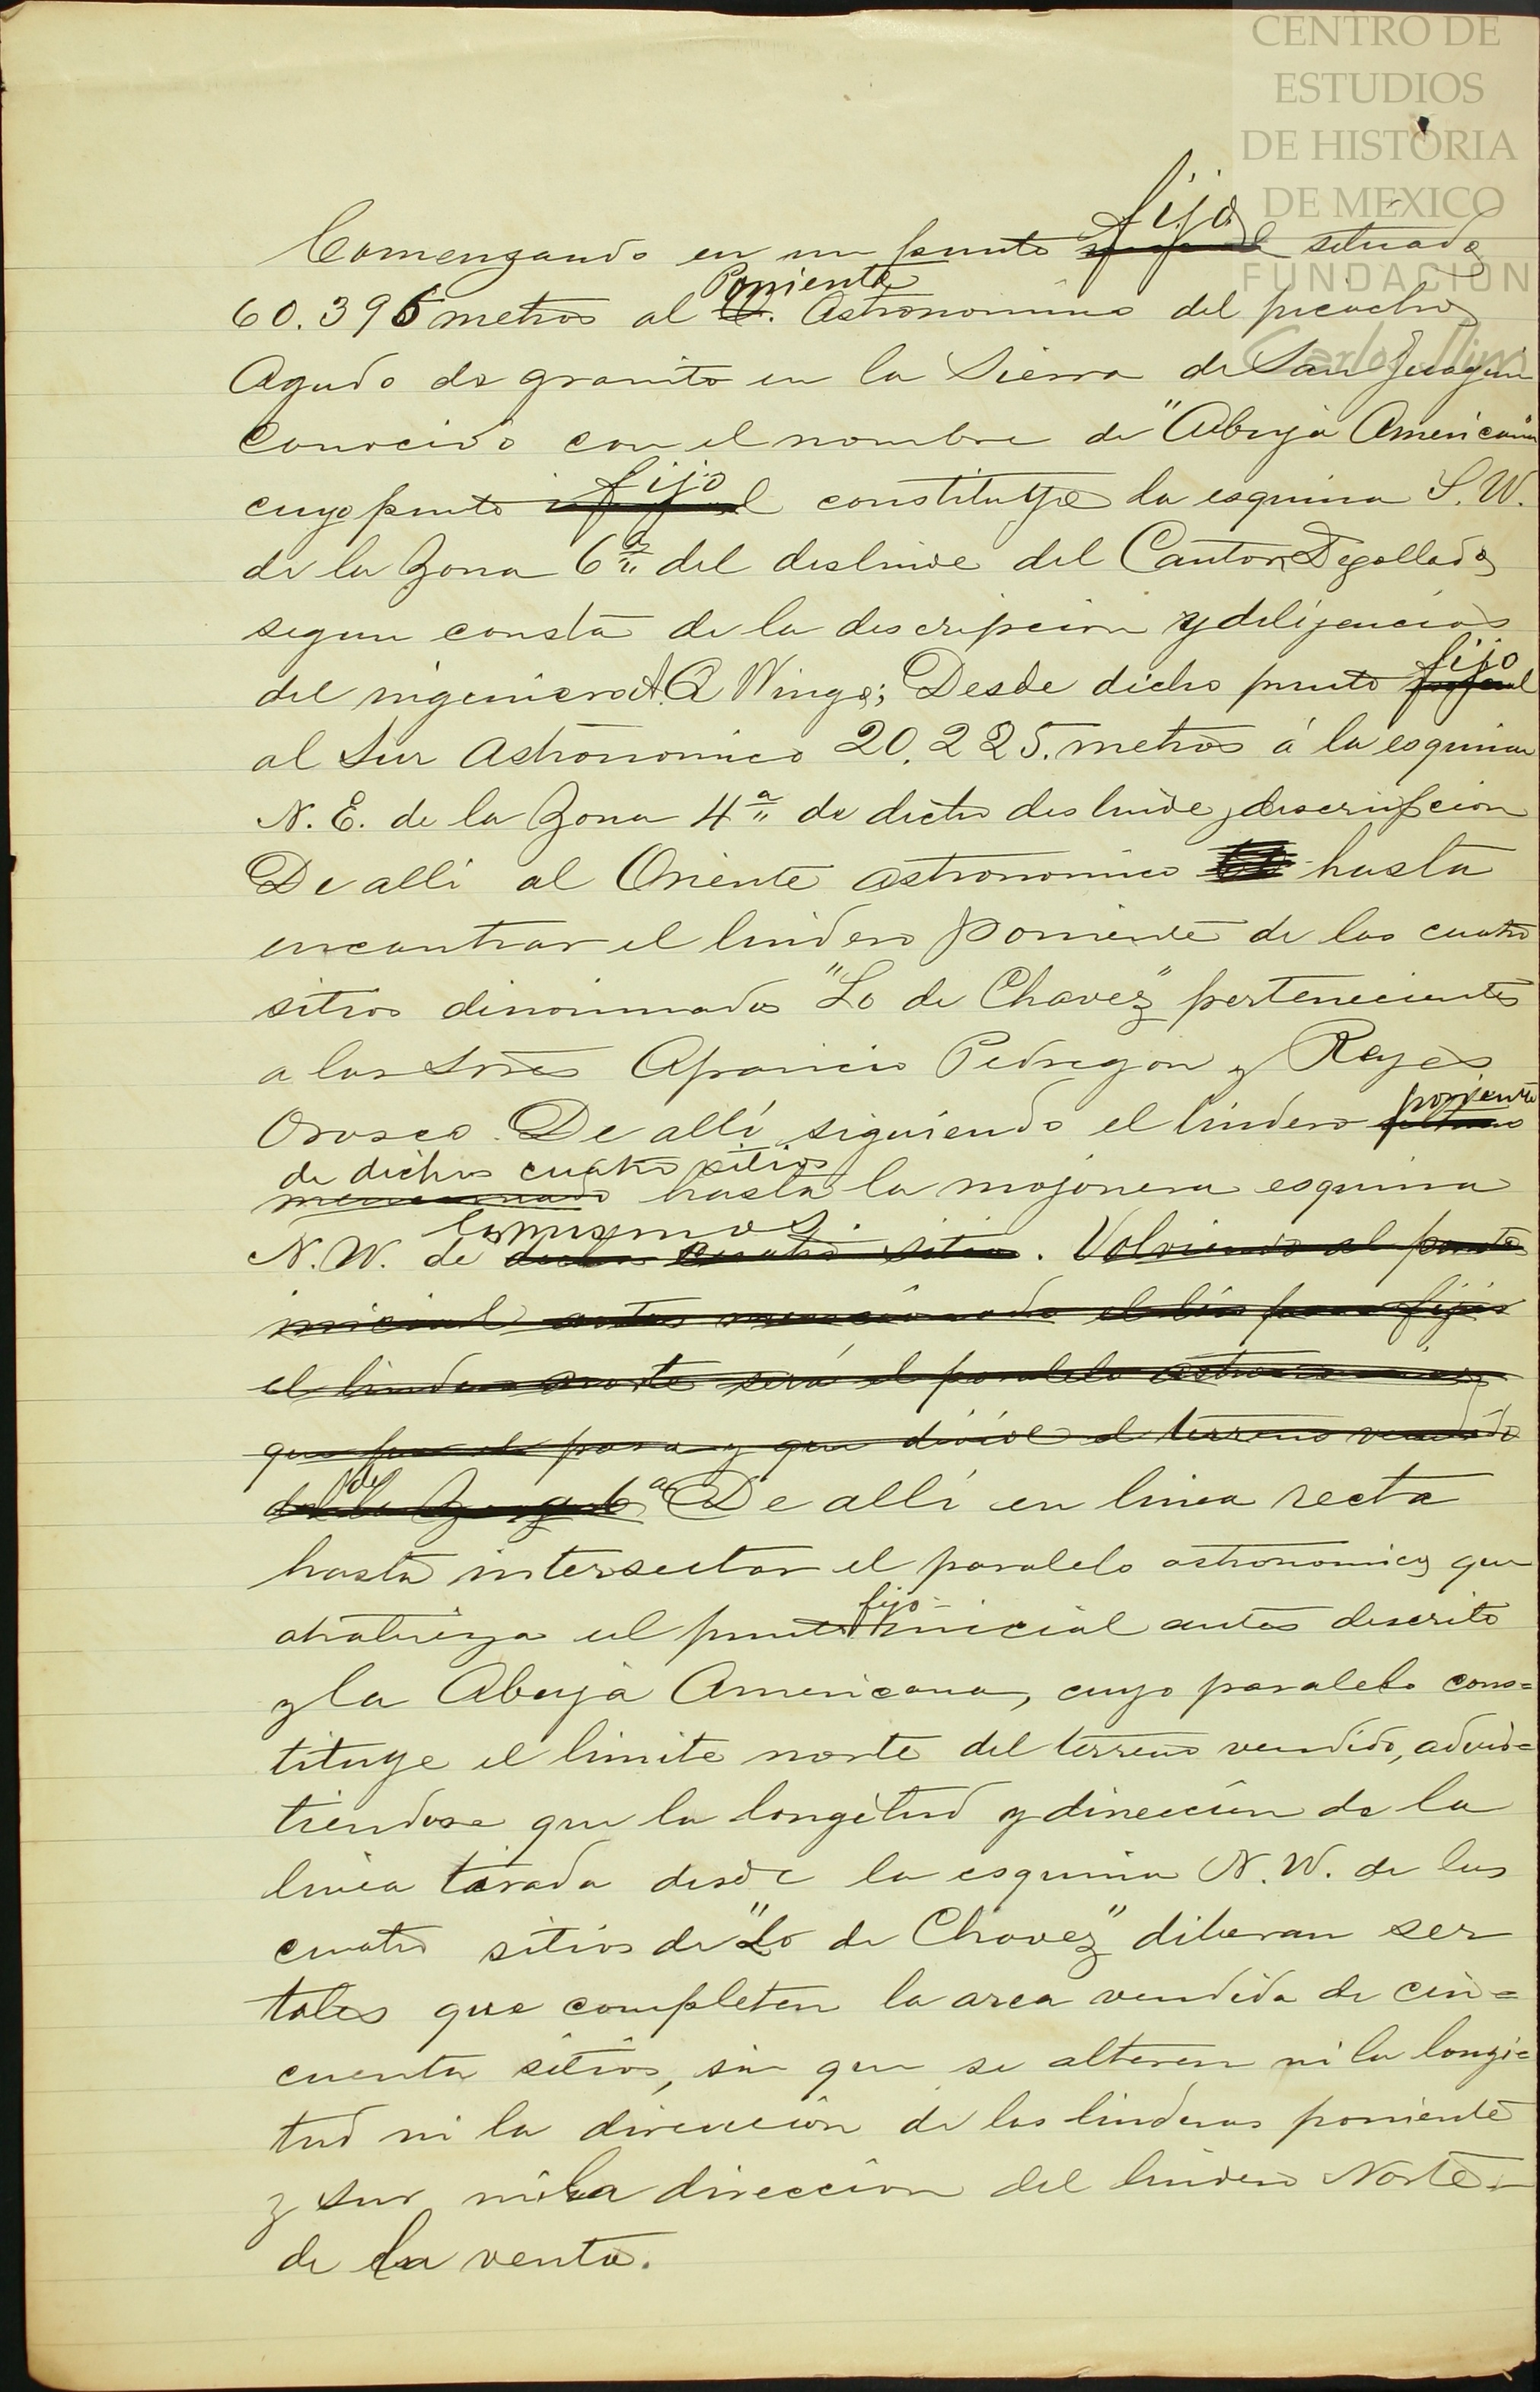 CENTRO DE
ESTUDIOS
DE HISTORIA
DE MEXICO
FUNDACION
Carlos Slim
fijo
Comenzando en un punto situado
Poniente
60.396 metros al O. Astronomico del picacho
Agudo de granito en la Sierra de San Juaquin
Conocido con el nombre de "Abuja Americana
fijo
cuyo punto constituye la esquina S.W.
de la Zona 6ª del deslinde del Canton Degollado
segun consta de la descripcion y diligencias
fijo
del ingeniero A.Q Wingo; Desde dicho punto
al Sur Astronomico 20.225. metros á la esquina
N.E. de la Zona 4ª de dicho deslinde y descripcion
De alli al Oriente astronomico hasta
encontrar el lindero Poniente de los cuatro
sitios dinominados "Lo de Chavez" pertenecientes
a los Sres Aparicio Pedregon y Reyes
poniente
Orosco. De allí siguiendo el lindero
de dichos cuatro sitios
mencionado hasta la mojonera esquina
los mismos.
N.W. de dichos cuatro sitios. Volviendo al punto
inicial antes mencionado el fijar
el lindero norte será el paralelo astronomico
que por el pasa y que divide el terreno vendido
de la Zona 6ª De allí en linea recta
hasta intersectar el paralelo astronomico que
fijo
atravieza el punto inicial antes descrito
y la Abuja Americana, cuyo paralelo cons=
tituye el limite norte del terreno vendido, advir=
tiendose que la longitud y direccion de la
linea tirada desde la esquina N.W. de los
cuatro sitios de "Lo de Chavez" diberan ser
tales que completen la area vendida de cin=
cuenta sitios, sin que se alteren ni la longi=
tud ni la direccion de los linderos poniente
y sur ni la direccion del lindero Norte
de la venta.